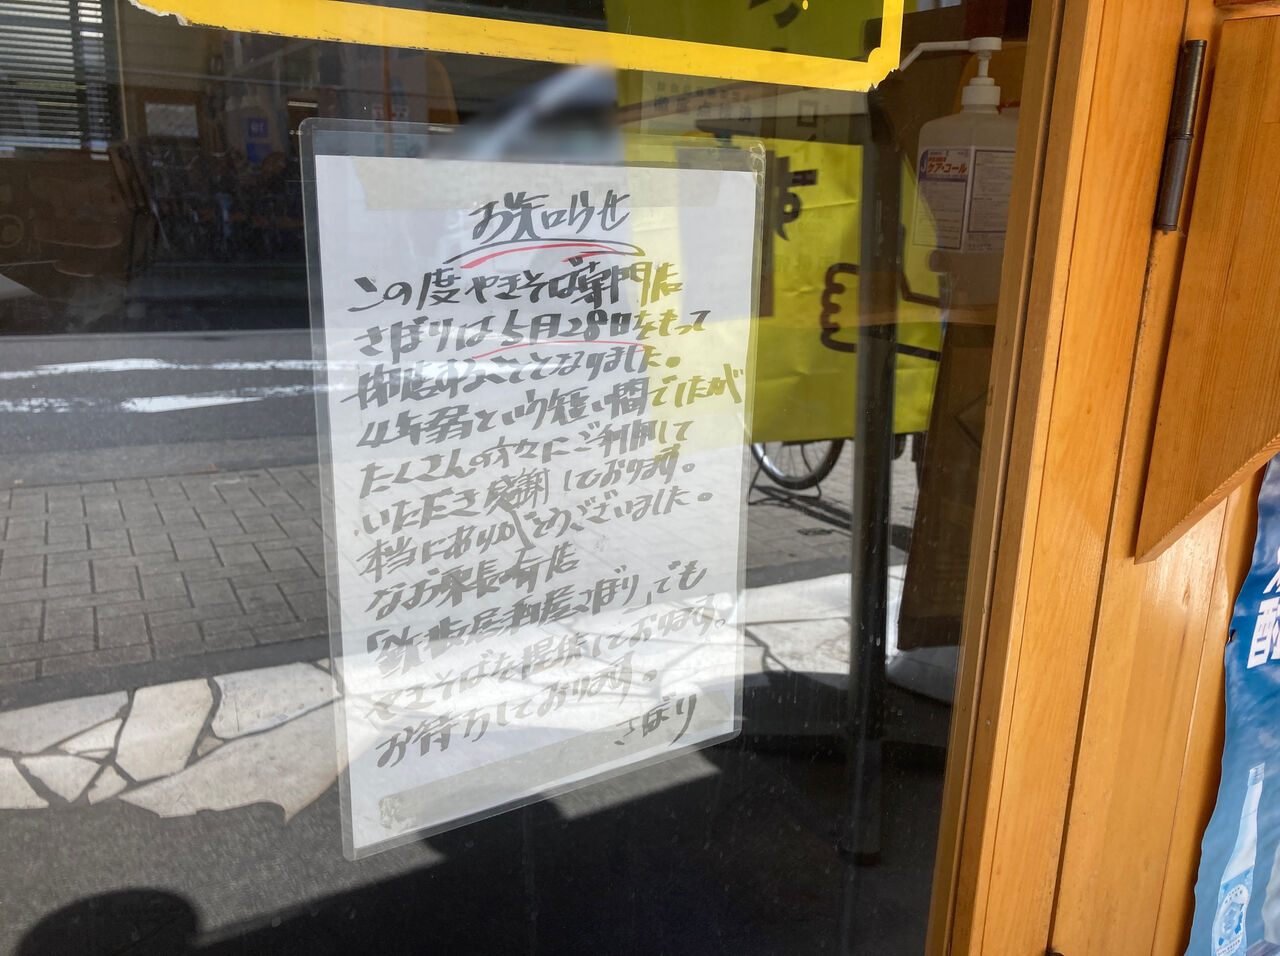 お知らせ
この度やきそば専門店
さぼりは5月28日をもって
閉店することとなりました。
4年弱という短い間でしたが
たくさんの方々にご利用して
いただき感謝しております。
本当にありがとうございました。
なお泉長寿店
「鉄板居酒屋さぼり」でも
やきそばを提供しております。
お待ちしております。
さぼり
ケア・コール
す